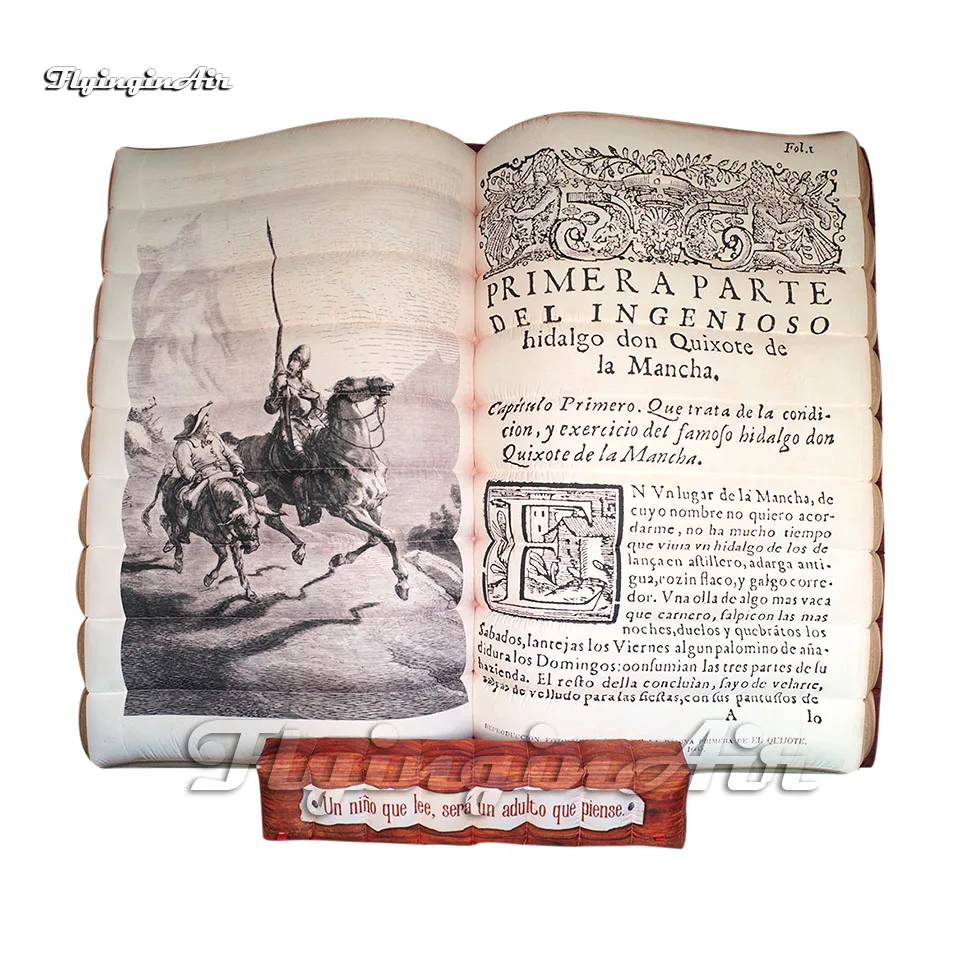 FlyinginAir
Fol.1
PRIMERA PARTE
DEL INGENIOSO
hidalgo don Quixote de
la Mancha.
Capitulo Primero. Que trata de la condi-
cion, y exercicio del famoſo hidalgo don
Quixote de la Mancha.
EN Vn lugar de la Mancha, de
cuyo nombre no quiero acor-
darme, no ha mucho tiempo
que viuia vn hidalgo de los de
lança en aſtillero, adarga anti-
gua, rozin flaco, y galgo corre-
dor. Vna olla de algo mas vaca
que carnero, ſalpicon las mas
noches, duelos y quebrãtos los
Sabados, lantejas los Viernes algun palomino de aña-
didura los Domingos: conſumian las tres partes de ſu
hazienda. El reſto della concluian, ſayo de velarte,
de velludo para las fieſtas, con ſus pantuflos de
A lo
REPRODUCCION PRIMERA DE EL QUIJOTE.
FlyinginAir
Un niño que lee, será un adulto que piense.